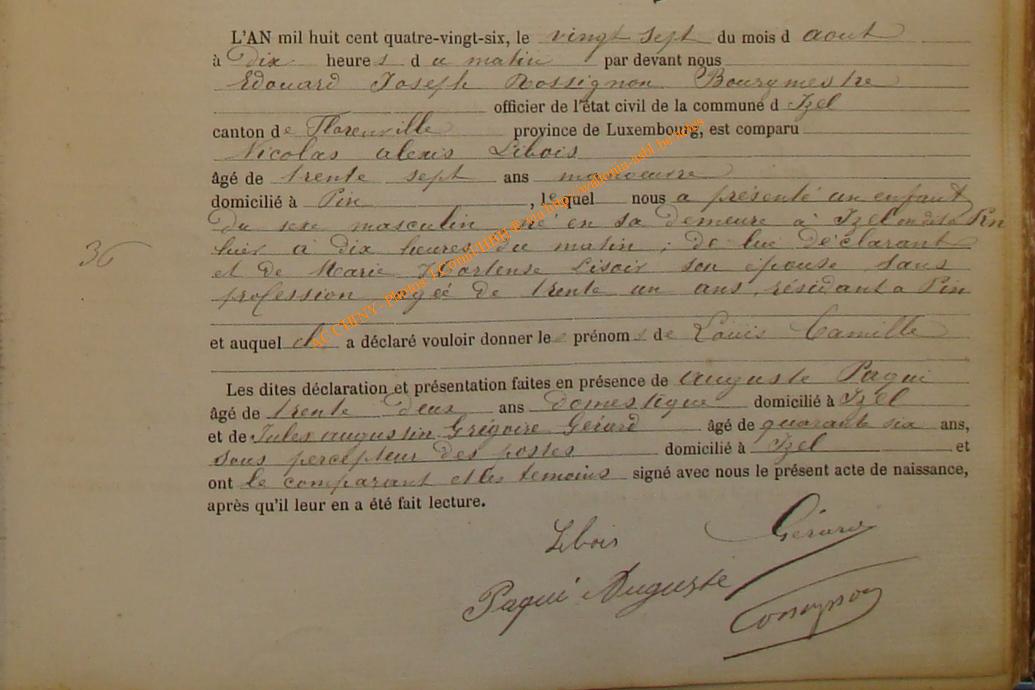 L'AN mil huit cent quatre-vingt-six, le vingt sept du mois d août
à Dix heures du matin par devant nous
Edouard Joseph Rossignon Bourgmestre
officier de l'état civil de la commune d Izel
canton de Florenville province de Luxembourg, est comparu
Nicolas alexis Libois
âgé de trente sept ans manoeuvre
domicilié à Pin, lequel nous a présenté un enfant
du sexe masculin né en sa demeure à Izel Pin
hier à dix heures du matin ; de lui déclarant
et de Marie Hortense Lisoir son épouse sans
profession agée de trente un ans, résidant a Pin
36
et auquel il a déclaré vouloir donner le prénoms de Louis Camille
Les dites déclaration et présentation faites en présence de auguste Paqui
âgé de trente deux ans Domestique domicilié à Izel
et de Jules augustin Grégoire Gérard âgé de quarante six ans,
sous percepteur des postes domicilié à Izel et
ont le comparant et les témoins signé avec nous le présent acte de naissance,
après qu'il leur en a été fait lecture.
Libois Gérard
Paqui Auguste